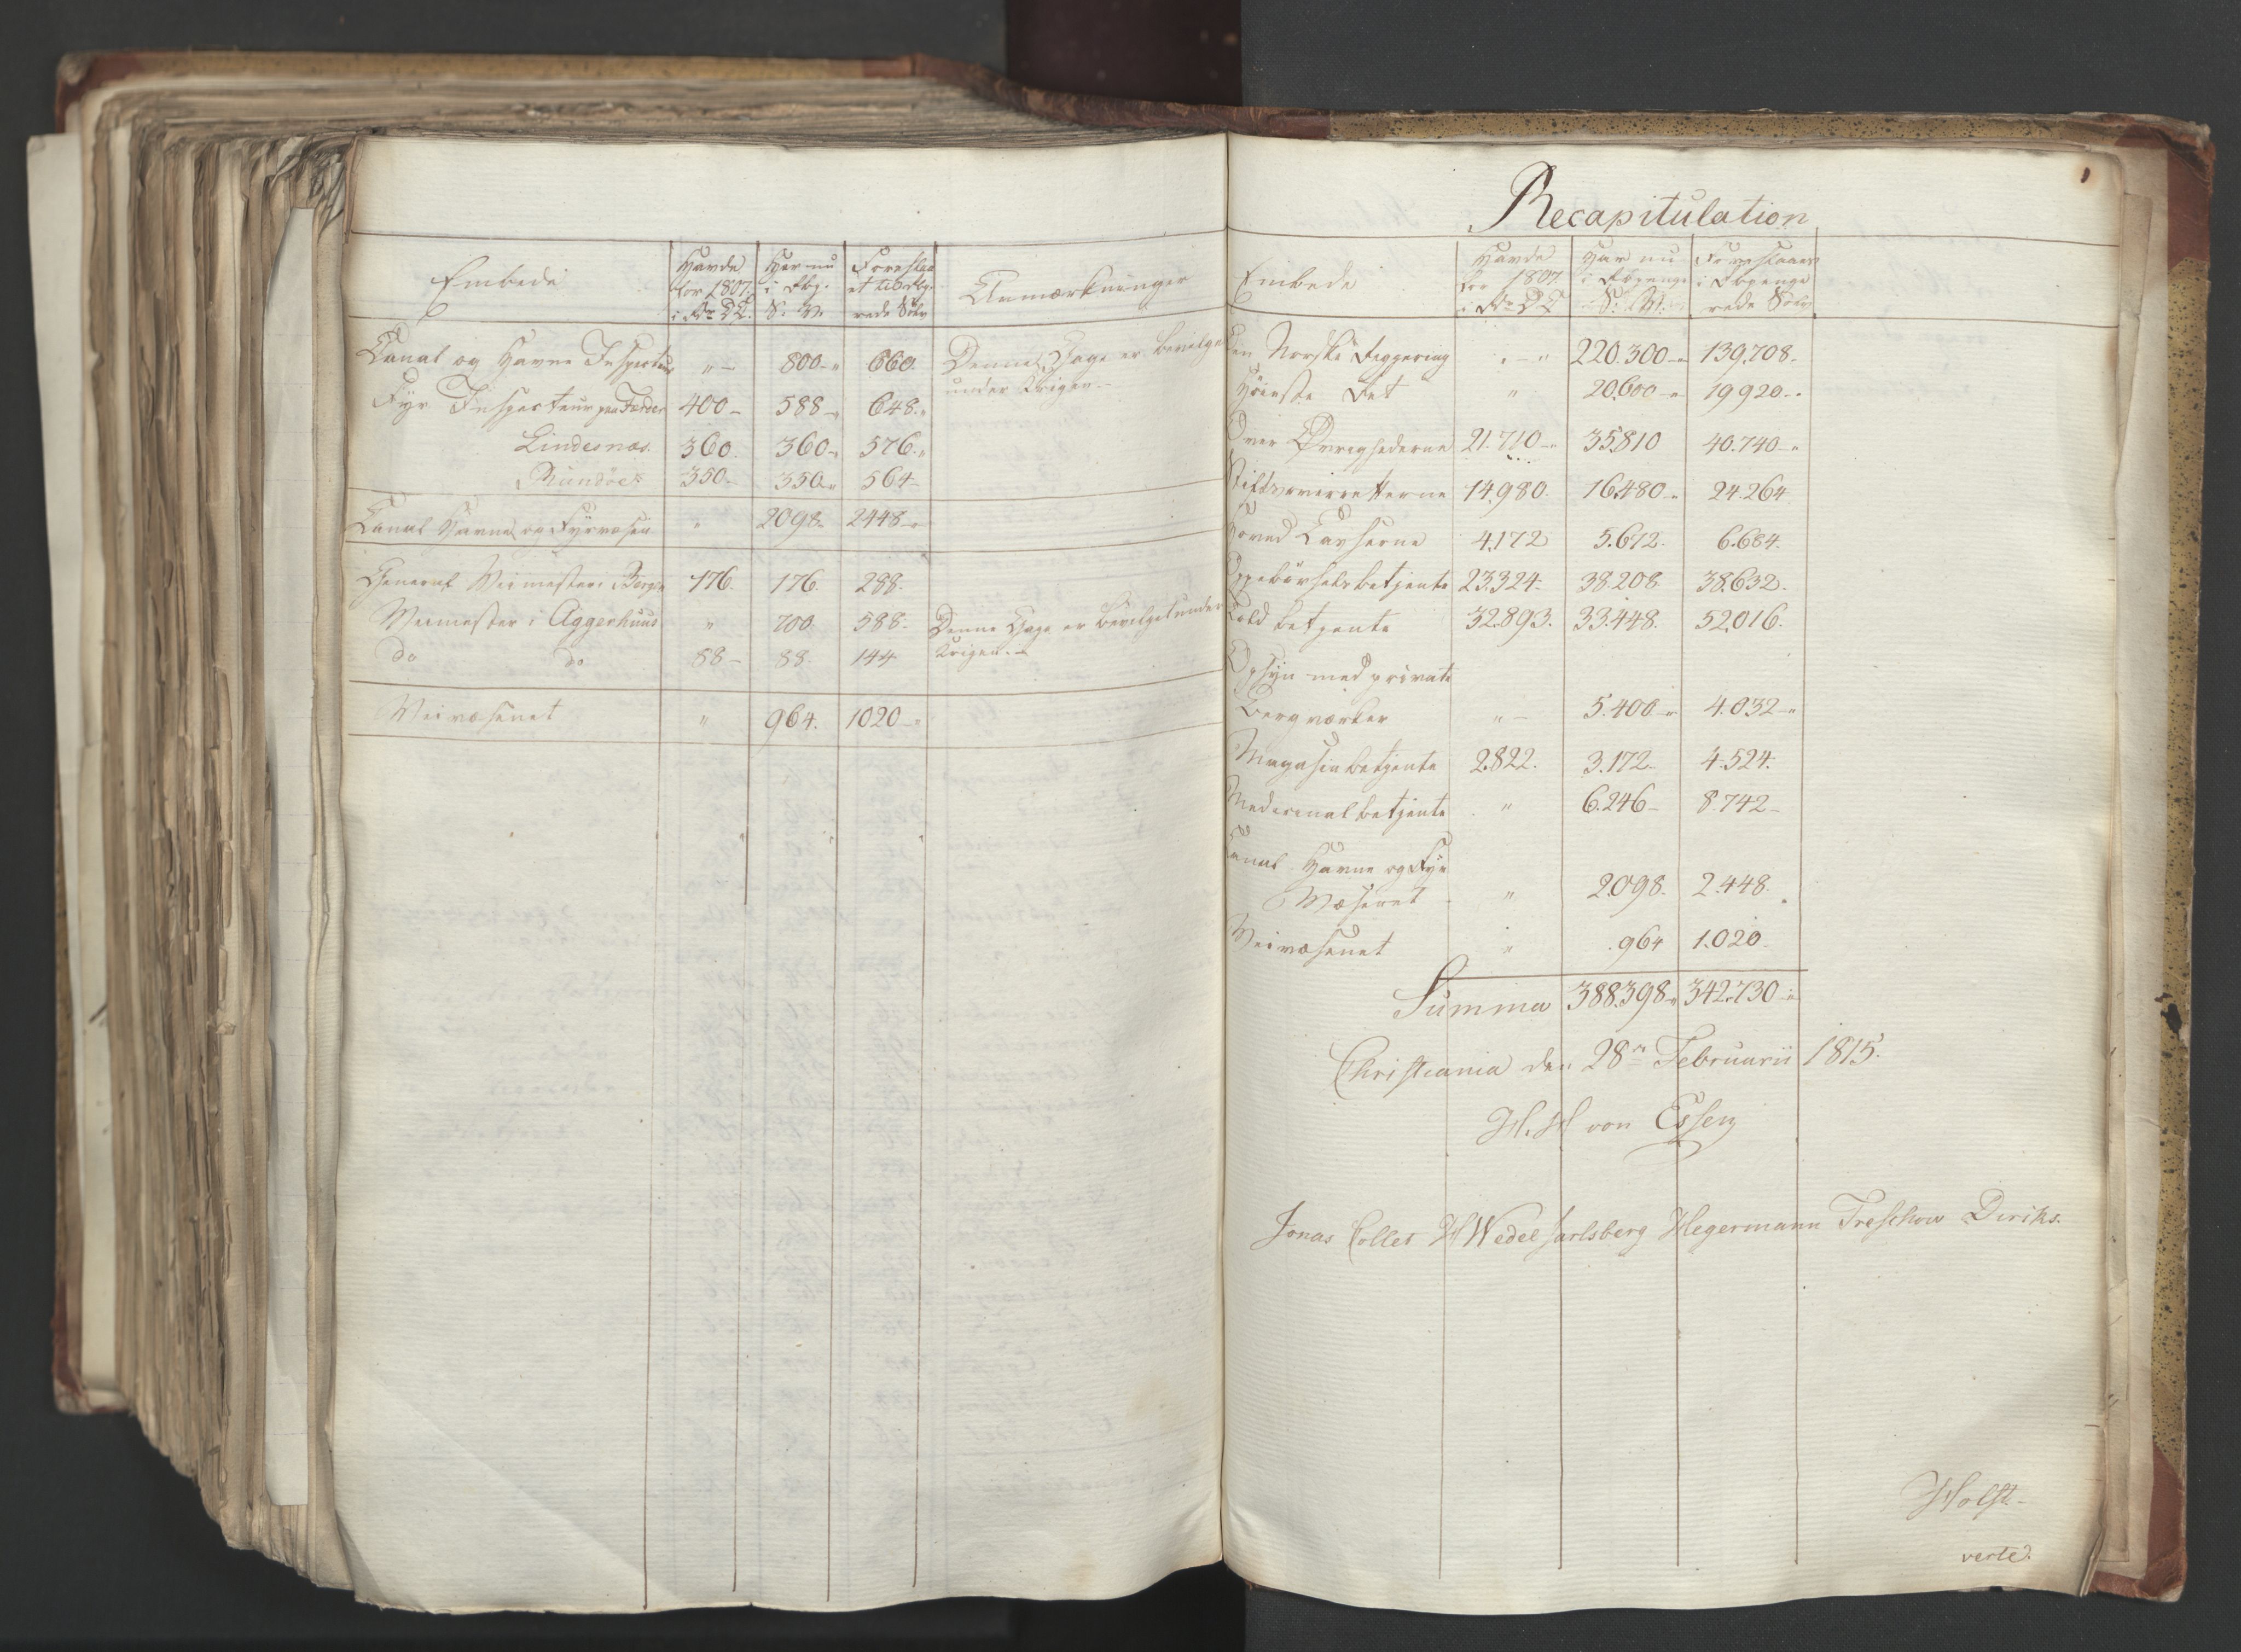 Embede
Havde for 1807 i Dr DC.
Har nu i Rbp. S. V.
Foreslaaet i Rbp. rede Sölv
Anmærkninger
Canal og Havne Inspecteur " 800 - " 660.
Denne Gage er bevilget under Krigen.
Fyr Inspecteur paa Færder 400 - 588 - " 648. "
Lindesnæs. 360. 360 - " 576. "
Rundöer 350 - 350 - " 564 -
Canal Havne og Fyrvæsen " 2098. 2448 - "
General Veimester i Bergen 176. 176. 288.
Veimester i Aggerhuus " 700. 588 -
Denne Gage er bevilget under Krigen. -
do do 88 - 88. 144
Veivæsenet " 964. 1020 - "
Recapitulation
Embede
Havde for 1807 i Dr DC
Har nu i Rbpenge S. V.
Foreslaaes i Rbpenge rede Sölv
Den Norske Regjering " - " 220.300 - " 139.708 -
Höieste Ret " 20.600 - " 19920 - "
Over Övrighederne 21.710 - " 35810 40.740 - "
Stiftsoverretterne 14.980. 16.480 - " 24.264
Hoved Casserne 4.172 5.672. 6.684.
Oppebörselsbetjente 23.324. 38.208 38.632.
Told betjente 32.893. 33.448. 52.016.
Opsyn med private
Bergværker " - 5.400 - " 4.032 - "
Magasin betjente 2.822. 3.172 - 4.524.
Medicinal betjente " 6.246 - 8.742 -
Canal Havne og Fyr
Væsenet " 2.098. 2.448.
Veivæsenet " .964 1.020 -
Summa 388.398 - " 342.730 - "
Christiania den 28de Februarii 1815.
H. H von Essen
Jonas Collet H Wedel Jarlsberg Hegermann Treschow Diriks.
Holst -
verte.